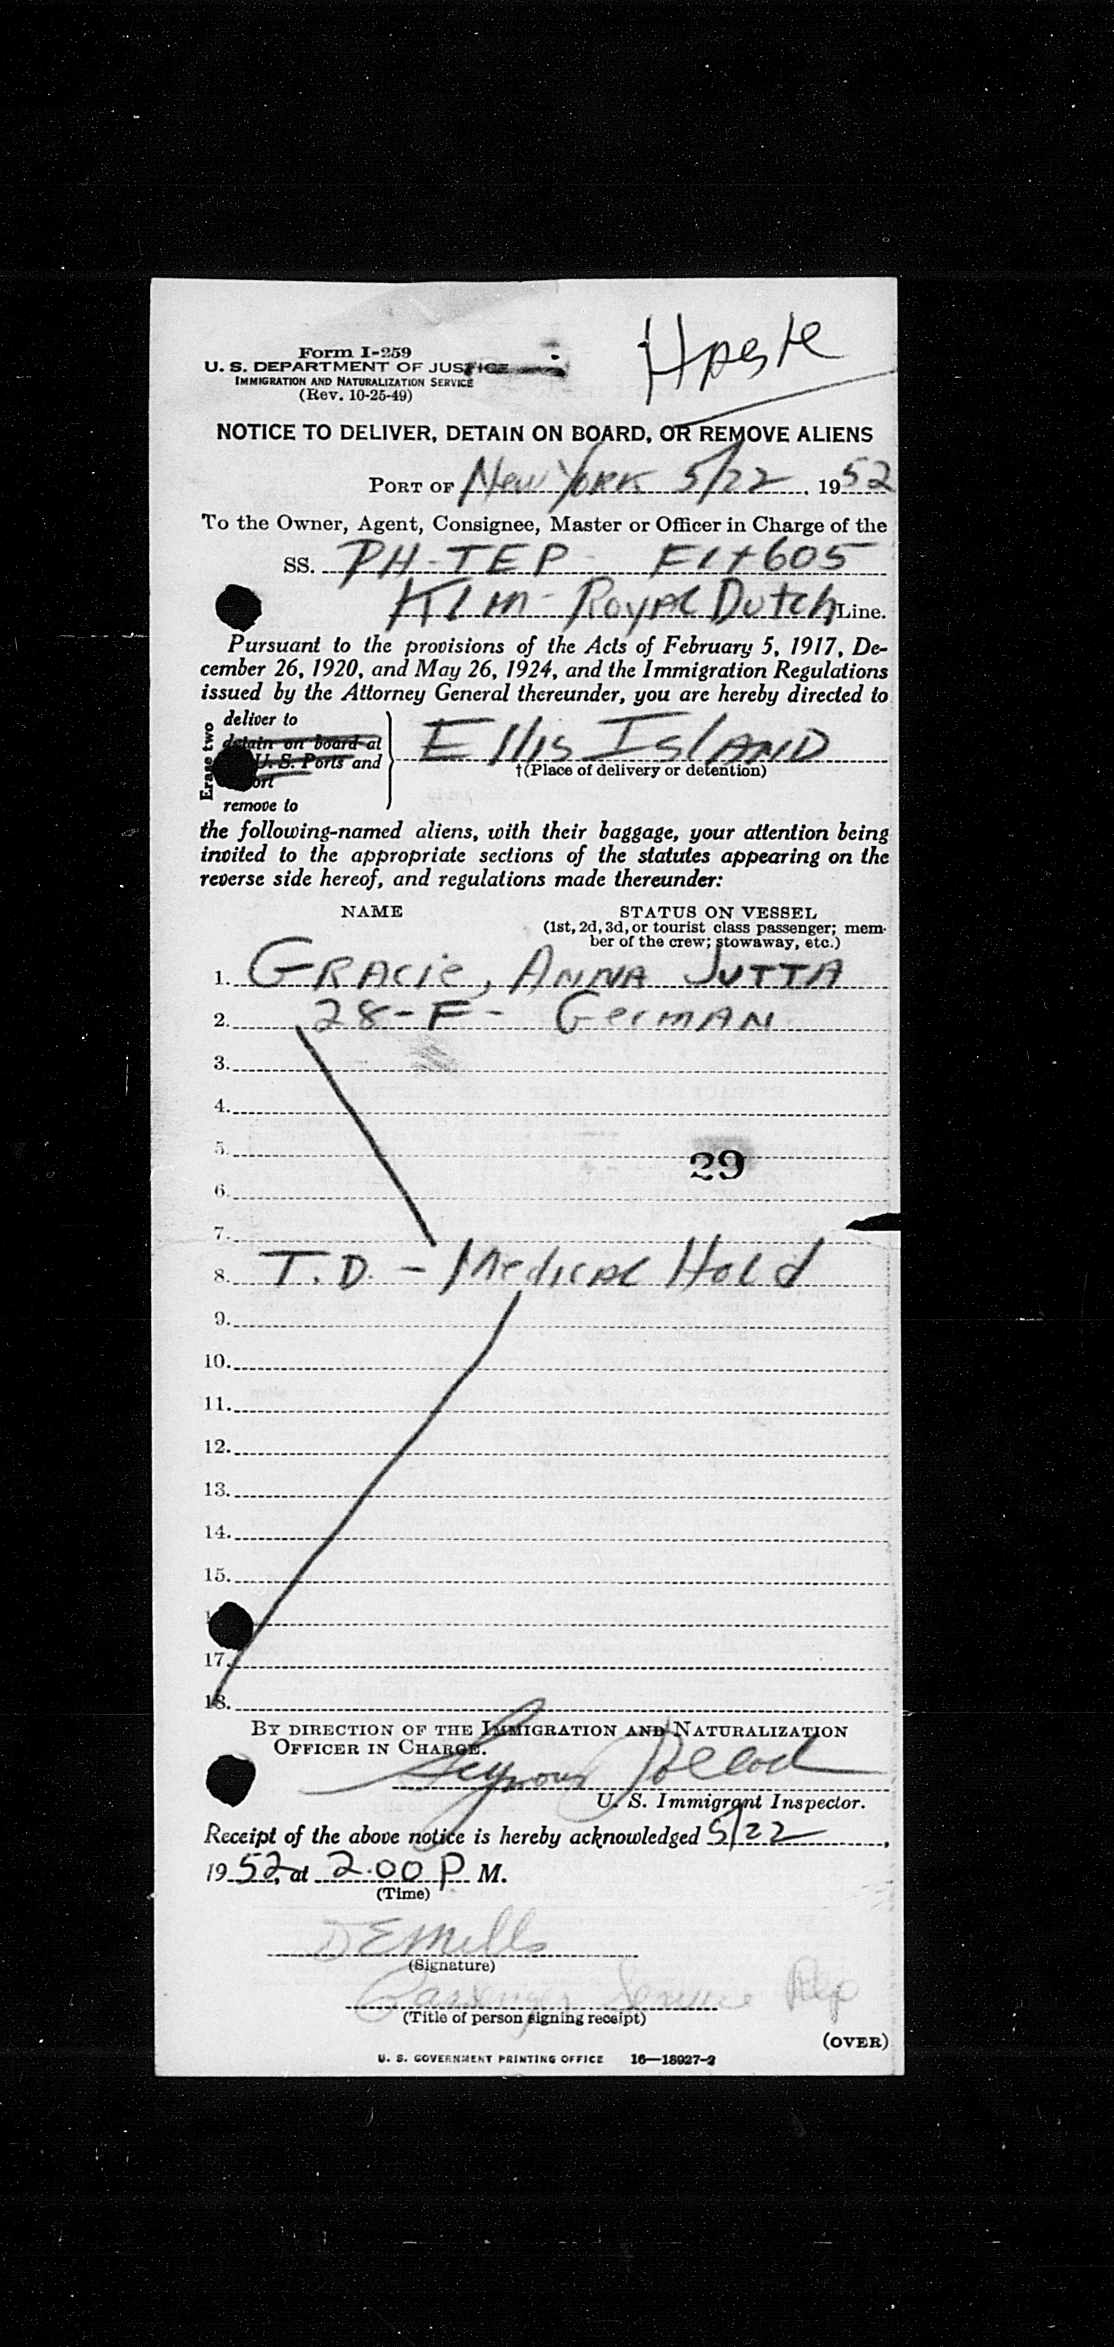 Form I-259
U. S. DEPARTMENT OF JUSTICE
IMMIGRATION AND NATURALIZATION SERVICE
(Rev. 10-25-49)
NOTICE TO DELIVER, DETAIN ON BOARD, OR REMOVE ALIENS
PORT OF New York 5/22, 1952
To the Owner, Agent, Consignee, Master or Officer in Charge of the
SS. PH-TEP - Flt 605
KLM - Royal Dutch Line.
Pursuant to the provisions of the Acts of February 5, 1917, De-
cember 26, 1920, and May 26, 1924, and the Immigration Regulations
issued by the Attorney General thereunder, you are hereby directed to
Erase two
deliver to
detain on board at
U. S. Ports and
remove to
Ellis Island
†(Place of delivery or detention)
the following-named aliens, with their baggage, your attention being
invited to the appropriate sections of the statutes appearing on the
reverse side hereof, and regulations made thereunder:
NAME STATUS ON VESSEL
(1st, 2d, 3d, or tourist class passenger; mem-
ber of the crew; stowaway, etc.)
1. GRACIE, ANNA JUTTA
2. 28-F- GerMAN
3.
4.
5.
29
6.
7.
8. T.D. - Medical Hold
9.
10.
11.
12.
13.
14.
15.
17.
18.
BY DIRECTION OF THE IMMIGRATION AND NATURALIZATION
OFFICER IN CHARGE.
Seymour Pollock
U. S. Immigrant Inspector.
Receipt of the above notice is hereby acknowledged 5/22,
1952, at 2.00 P M.
(Time)
D E Mills
(Signature)
Passenger Service Rep
(Title of person signing receipt)
(OVER)
U. S. GOVERNMENT PRINTING OFFICE 16—18927-2